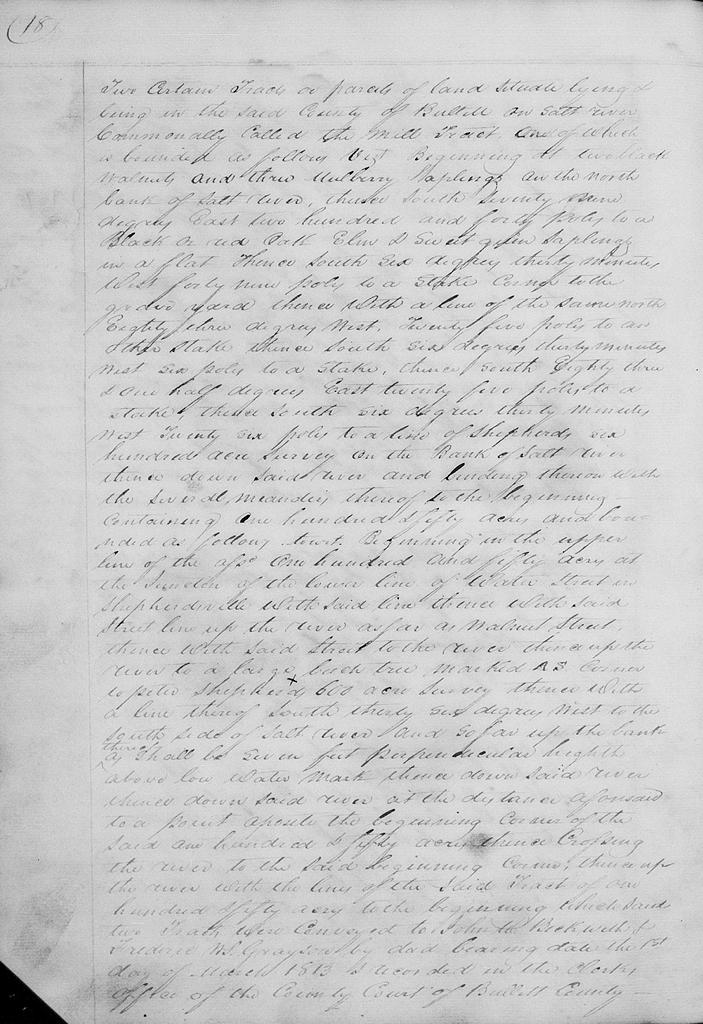 (18)
Two Certain Tracts or parcels of land situate lying &
being in the said County of Bullitt on Salt river
Commonally Called the Mill Tract. One of Which
is bounded as follows Viz Beginning at two black
walnuts and three Mulberry Saplings on the north
bank of Salt river, thence South Seventy nine
degrees East two hundred and forty poles to a
Black or red Oak Elm & Sweet gum Saplings
in a flat Thence South Six degrees thirty minutes
West forty nine poles to a Stake Corner to the
grave yard thence With a line of the same north
Eighty three degrees West, Twenty five poles to an
other Stake thence South six degrees thirty minutes
West six poles to a Stake, thence South Eighty three
& one half degrees East twenty five poles to a
stake, thence South six degrees thirty minutes
West Twenty six poles to a line of Shepherds six
hundred acre Survey on the Bank of Salt river
thence down said river and binding thereon with
the several meanders thereof to the beginning
Containing One hundred & fifty acres and bou-
nded as follows towit. Beginning in the upper
line of the afsd One hundred and fifty acres at
the Junction of the lower line of Water Street in
Shepherdsville With said line thence With said
Street line up the river as far as Walnut Street,
thence With said Street to the river thence up the
river to a large beech tree marked A S Corner
to peter Shepherds 600 acre Survey thence With
x
a line thereof South thirty six degrees West to the
South side of Salt river and so far up the bank
thereof
as Shall be Seven feet perpendicular heighth
above low Water Mark thence down said river
thence down said river at the distance aforesaid
to a point aposite the beginning Corner of the
said one hundred & fifty acres thence Crossing
the river to the said beginning Corner, thence up
the river with the lines of the said Tract of one
hundred & fifty acres to the beginning Which said
two Tracts were Conveyed to John W. Beckwith &
Frederic W. S. Grayson by deed bearing date the 1st
day of March 1813 & recorded in the Clerks
office of the County Court of Bullitt County